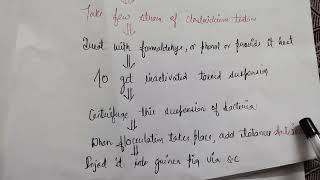 Take few strain of clostridium tetani
Treat with formaldehyde, or phenol or provide it heat
To get inactivated toward suspension
Centrifuge this suspension of bacteria
When flocculation takes place, add
Inject it into guinea pig via s.c